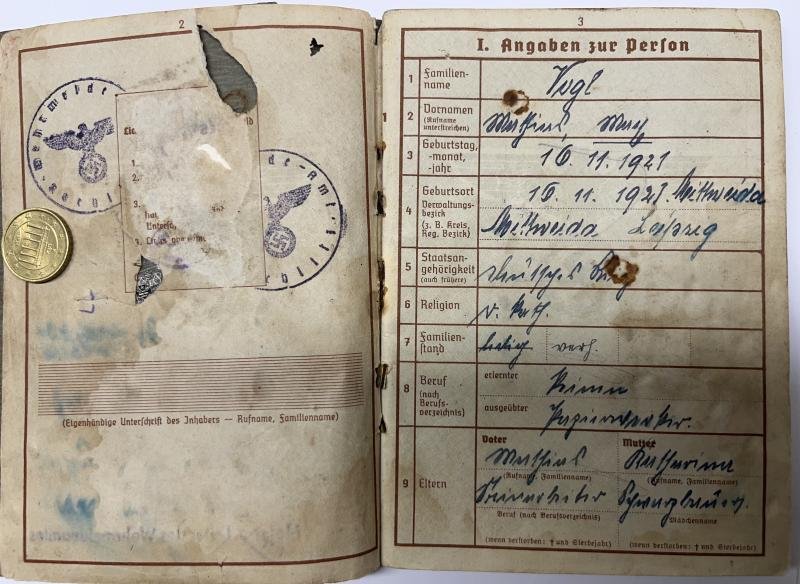 2
(Eigenhändige Unterschrift des Inhabers — Rufname, Familienname)
3
I. Angaben zur Person
1 Familien-
name
Vogl
2 Vornamen
(Rufname
unterstreichen)
Mathias, Max
3 Geburtstag,
-monat,
-jahr
16.11.1921
4 Geburtsort
Verwaltungs-
bezirk
(z. B. Kreis,
Reg. Bezirk)
16.11.1921. Mittweida
Mittweida Leipzig
5 Staatsan-
gehörigkeit
(auch frühere)
Deutsches
6 Religion
r. kath.
7 Familien-
stand
ledig verh.
8 Beruf
(nach
Berufs-
verzeichnis)
erlernter
ausgeübter
Papierwerker.
9 Eltern
Vater Mutter
Mathias Katharina
(Rufname, Familienname) (Rufname, Familienname)
Steinarbeiter Schwarzbauer.
Beruf (nach Berufsverzeichnis) Mädchenname
(wenn verstorben: † und Sterbejahr) (wenn verstorben: † und Sterbejahr)